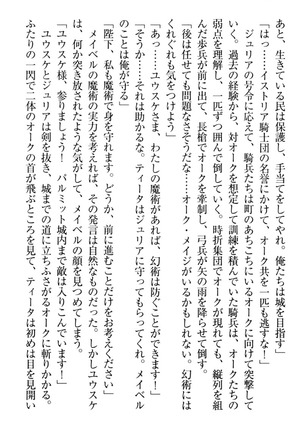 「生きている民は保護し、手当をしてやれ。俺たちは城を目指す」
「はっ……イストリア騎士団の名誉にかけて、オーク共を一匹も逃すな！」
ジュリアの号令に応じて、騎兵たちは町のあちこちにいるオークに向けて突撃して
いく。過去の経験から、対オークを想定して訓練を積んでいた騎兵は、オークたちの
弱点を理解し、一匹ずつ囲んで倒していく。時折集団でオークが現れても、縦列を組
んだ歩兵が前に出て、長槍でオークを牽制し、弓兵が矢の雨を降らせて倒す。
「後は任せても問題なさそうだな……オーク・メイジがいるかもしれない。幻術には
くれぐれも気をつけよう」
「……ユウスケさま、わたしの魔術があれば、幻術は防ぐことができます！」
「そうか……それは助かるな。ティータはジュリアに守ってもらってくれ。メイベル
は俺が守る」
「陛下、私も魔術で身を守れます。どうか、前に進むことだけをお考えください」
メイベルの魔術の実力を考えれば、その発言は自然なものだった。しかしユウスケ
は、何か突き放されたような気がして、メイベルの顔を見つめてしまう。
「ユウスケ様、参りましょう！　パルミット城内まで敵は入りこんでいます！」
ユウスケとジュリアは剣を抜き、城までの道に立ちふさがるオークに斬りかかる。
ふたりの一閃で二体のオークの首が飛ぶところを見て、ティータは初めは目を見開い